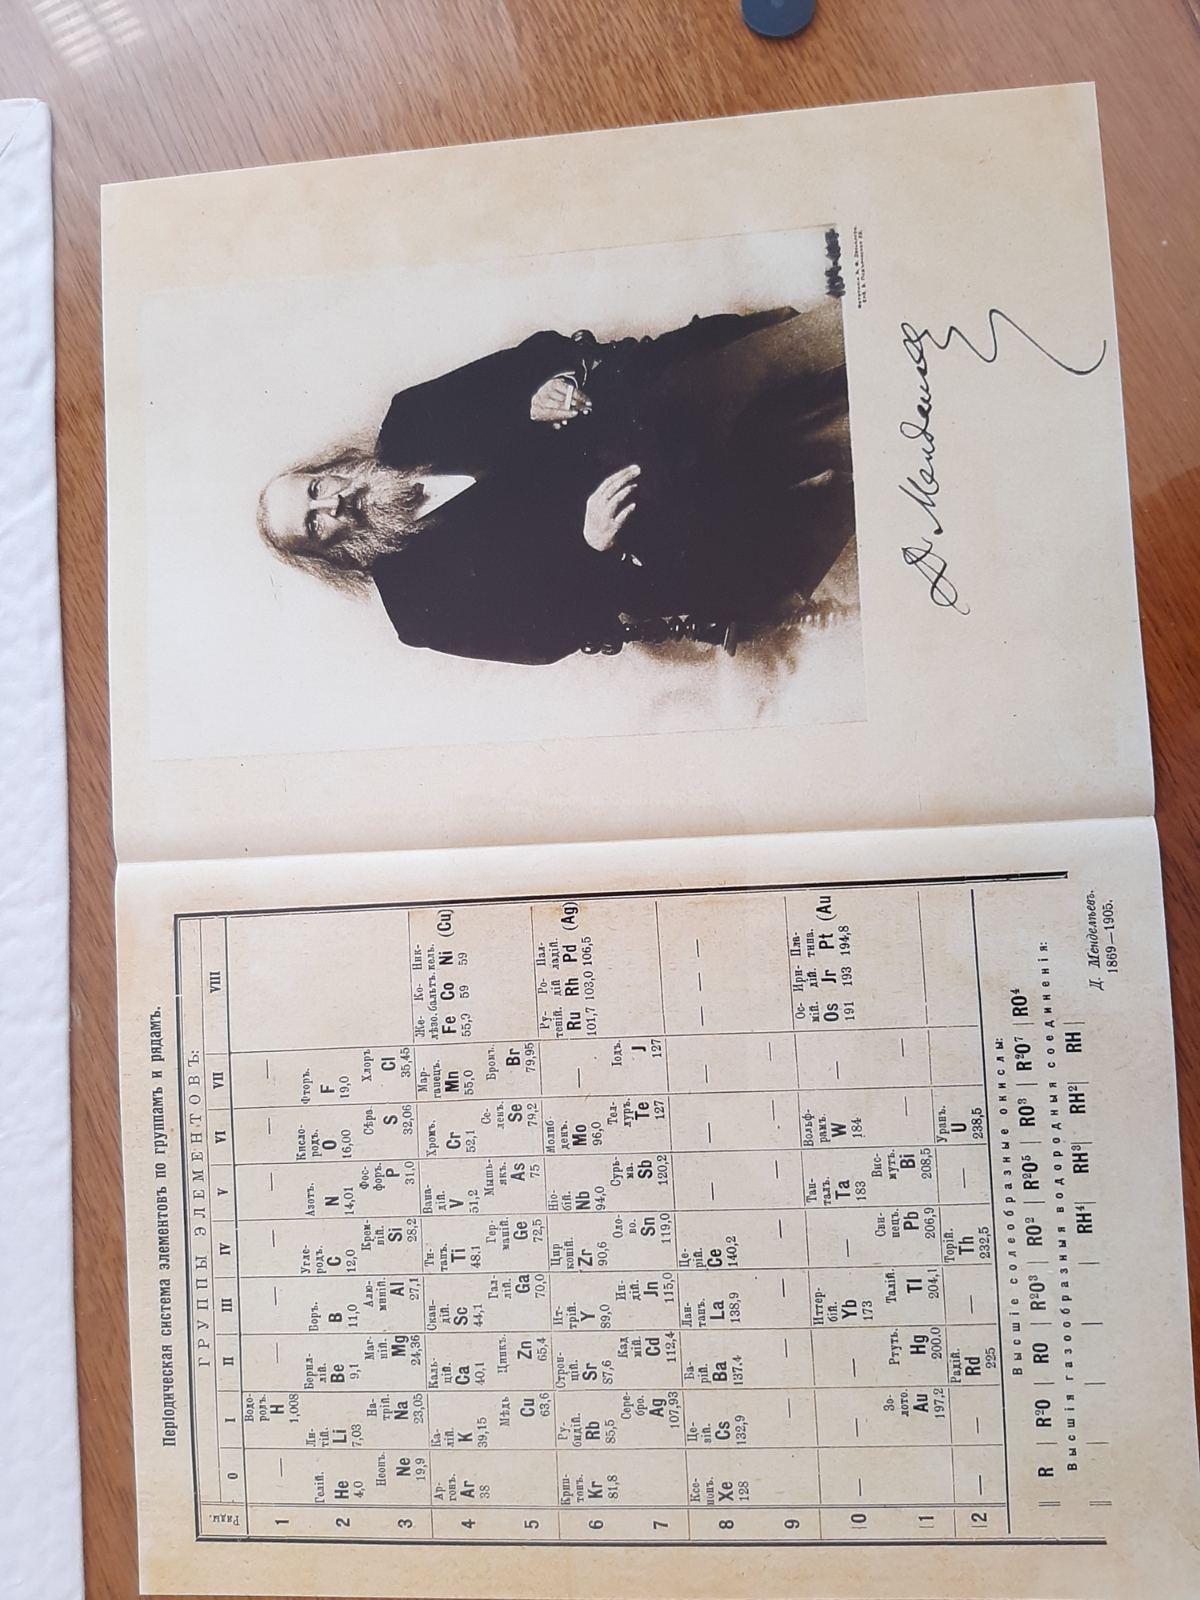 Періодическая система элементовъ по группамъ и рядамъ.
Ряды. ГРУППЫ ЭЛЕМЕНТОВЪ:
0 I II III IV V VI VII VIII
1 — Водо-родъ. H 1,008 — — — — — —
2 Гелій. He 4,0 Ли-тій. Li 7,03 Берил-лій. Be 9,1 Боръ. B 11,0 Угле-родъ. C 12,0 Азотъ. N 14,01 Кисло-родъ. O 16,00 Фторъ. F 19,0
3 Неонъ. Ne 19,9 На-трій. Na 23,05 Маг-ній. Mg 24,36 Алю-миній. Al 27,1 Крем-ній. Si 28,2 Фос-форъ. P 31,0 Сѣра. S 32,06 Хлоръ Cl 35,45
4 Ар-гонъ. Ar 38 Ка-лій. K 39,15 Каль-цій. Ca 40,1 Скан-дій. Sc 44,1 Ти-танъ. Ti 48.1 Вана-дій. V 51,2 Хромъ. Cr 52,1 Мар-ганецъ. Mn 55,0 Же-лѣзо. Fe 55,9 Ко-бальтъ. Co 59 Ник-кель. Ni 59 (Cu)
5 Мѣдь Cu 63,6 Цинкъ. Zn 65,4 Гал-лій. Ga 70,0 Гер-маній. Ge 72,5 Мышь-якъ. As 75 Се-ленъ. Se 79,2 Бромъ. Br 79,95
6 Крип-тонъ. Kr 81,8 Ру-бидій. Rb 85,5 Строн-цій. Sr 87,6 Ит-трій. Y 89,0 Цир коній. Zr 90,6 Ніо-бій. Nb 94,0 Молиб денъ. Mo 96,0 — Ру-теній. Ru 101,7 Ро-дій Rh 103,0 Пал-ладій. Pd 106,5 (Ag)
7 Сере-бро. Ag 107,93 Кад мій. Cd 112,4 Ин-дій. Jn 115,0 Оло-во. Sn 119,0 Сурь-ма. Sb 120,2 Тел-луръ. Te 127 Іодъ. J 127
8 Ксе-нонъ. Xe 128 Це-зій. Cs 132,9 Ба-рій. Ba 137.4 Лан-танъ. La 138,9 Це-рій. Ce 140,2 — — — — — —
9 — — — — — — —
10 — — — Иттер-бій. Yb 173 — Тан-талъ. Ta 183 Вольф-рамъ. W 184 — Ос-мій. Os 191 Ири-дій. Jr 193 Пла-тина. Pt 194,8 (Au
11 Зо-лото. Au 197,2 Ртуть. Hg 200.0 Талій. Tl 204,1 Сви-нецъ. Pb 206,9 Вис-мутъ. Bi 208,5 — —
12 — — Радій. Rd 225 — Торій. Th 232,5 — Уранъ. U 238,5
Высшіе солеобразные окислы:
R R²O RO R²O³ RO² R²O⁵ RO³ R²O⁷ RO⁴
Высшія газообразныя водородныя соединенія:
RH⁴ RH³ RH² RH
Д. Менделѣевъ.
1869—1905.
Д Менделеев